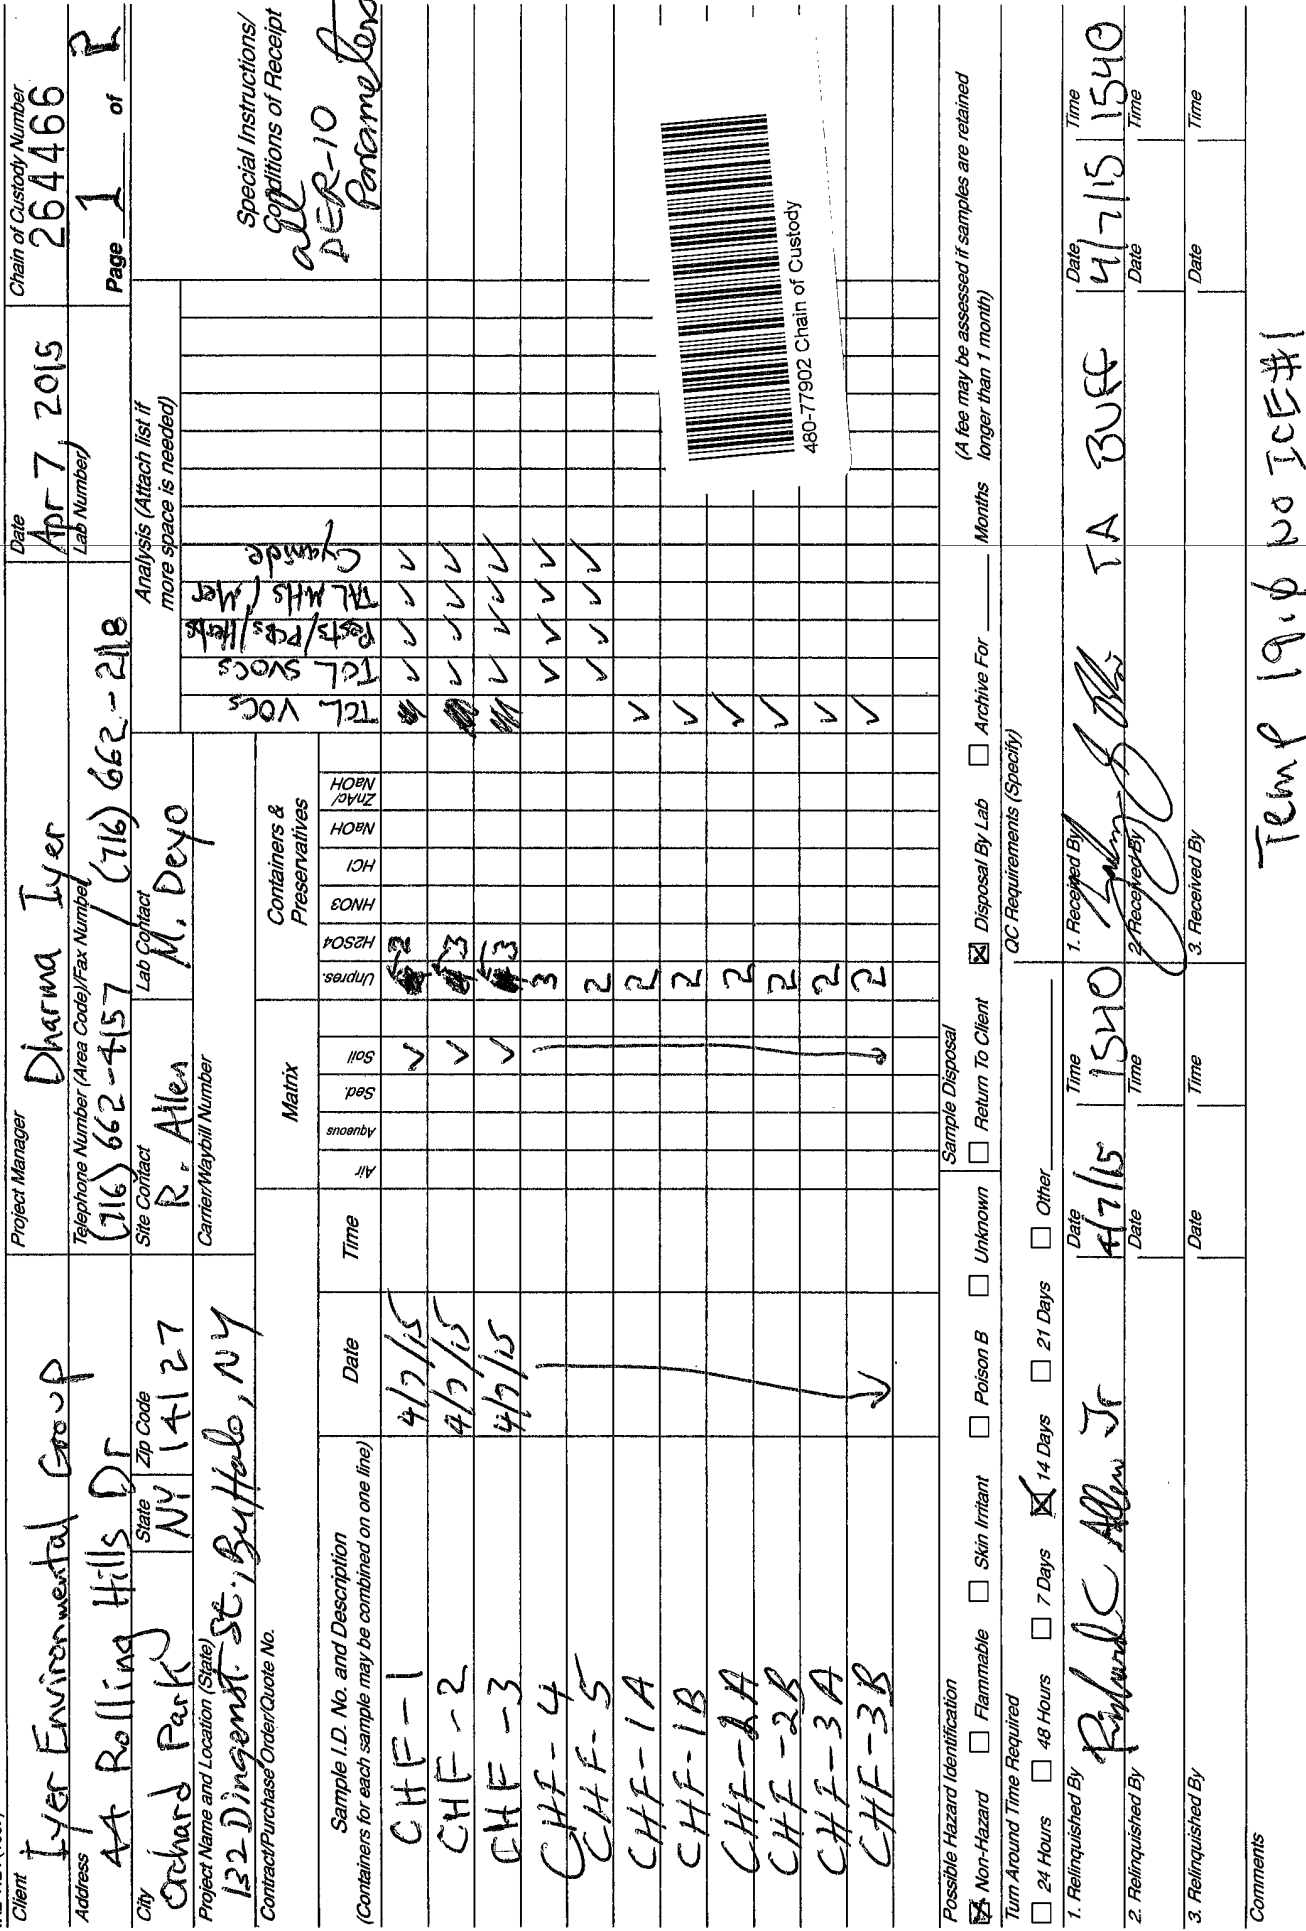 Client
Iyer Environmental Group
Project Manager
Dharma Iyer
Date
Apr 7, 2015
Chain of Custody Number
264466
Address
44 Rolling Hills Dr
Telephone Number (Area Code)/Fax Number
(716) 662-4157 / (716) 662-2118
Lab Number
Page 1 of
City
Orchard Park
State
NY
Zip Code
14127
Site Contact
R. Allen
Lab Contact
M. Deyo
Analysis (Attach list if
more space is needed)
Project Name and Location (State)
132 Dingenst. St., Buffalo, NY
Carrier/Waybill Number
Contract/Purchase Order/Quote No.
Matrix
Containers &
Preservatives
Special Instructions/
Conditions of Receipt
all
DER-10
Parameters
Sample I.D. No. and Description
(Containers for each sample may be combined on one line)
Date
Time
Air
Aqueous
Sed.
Soil
Unpres.
H2SO4
HNO3
HCl
NaOH
ZnAc/
NaOH
TCL VOCs
TCL SVOCs
Pests/PCBs/Herbs
TAL Mtls/Mer
Cyanide
CHF-1 4/7/15 ✓ 2 ✓ ✓ ✓ ✓
CHF-2 4/7/15 ✓ 3 ✓ ✓ ✓ ✓
CHF-3 4/7/15 ✓ 3 ✓ ✓ ✓ ✓
CHF-4 3 ✓ ✓ ✓ ✓
CHF-5 2 ✓ ✓ ✓ ✓
CHF-1A 2 ✓
CHF-1B 2 ✓
CHF-2A 2 ✓
CHF-2B 2 ✓
CHF-3A 2 ✓
CHF-3B 2 ✓
480-77902 Chain of Custody
Possible Hazard Identification
☒ Non-Hazard ☐ Flammable ☐ Skin Irritant ☐ Poison B ☐ Unknown
Sample Disposal
☐ Return To Client ☒ Disposal By Lab ☐ Archive For ____ Months
(A fee may be assessed if samples are retained
longer than 1 month)
Turn Around Time Required
☐ 24 Hours ☐ 48 Hours ☐ 7 Days ☒ 14 Days ☐ 21 Days ☐ Other
QC Requirements (Specify)
1. Relinquished By
Richard C Allen Jr
Date
4/7/15
Time
1540
1. Received By
TA BUFF
Date
4/7/15
Time
1540
2. Relinquished By
Date
Time
2. Received By
Date
Time
3. Relinquished By
Date
Time
3. Received By
Date
Time
Comments
Temp 19.0 NO ICE #1